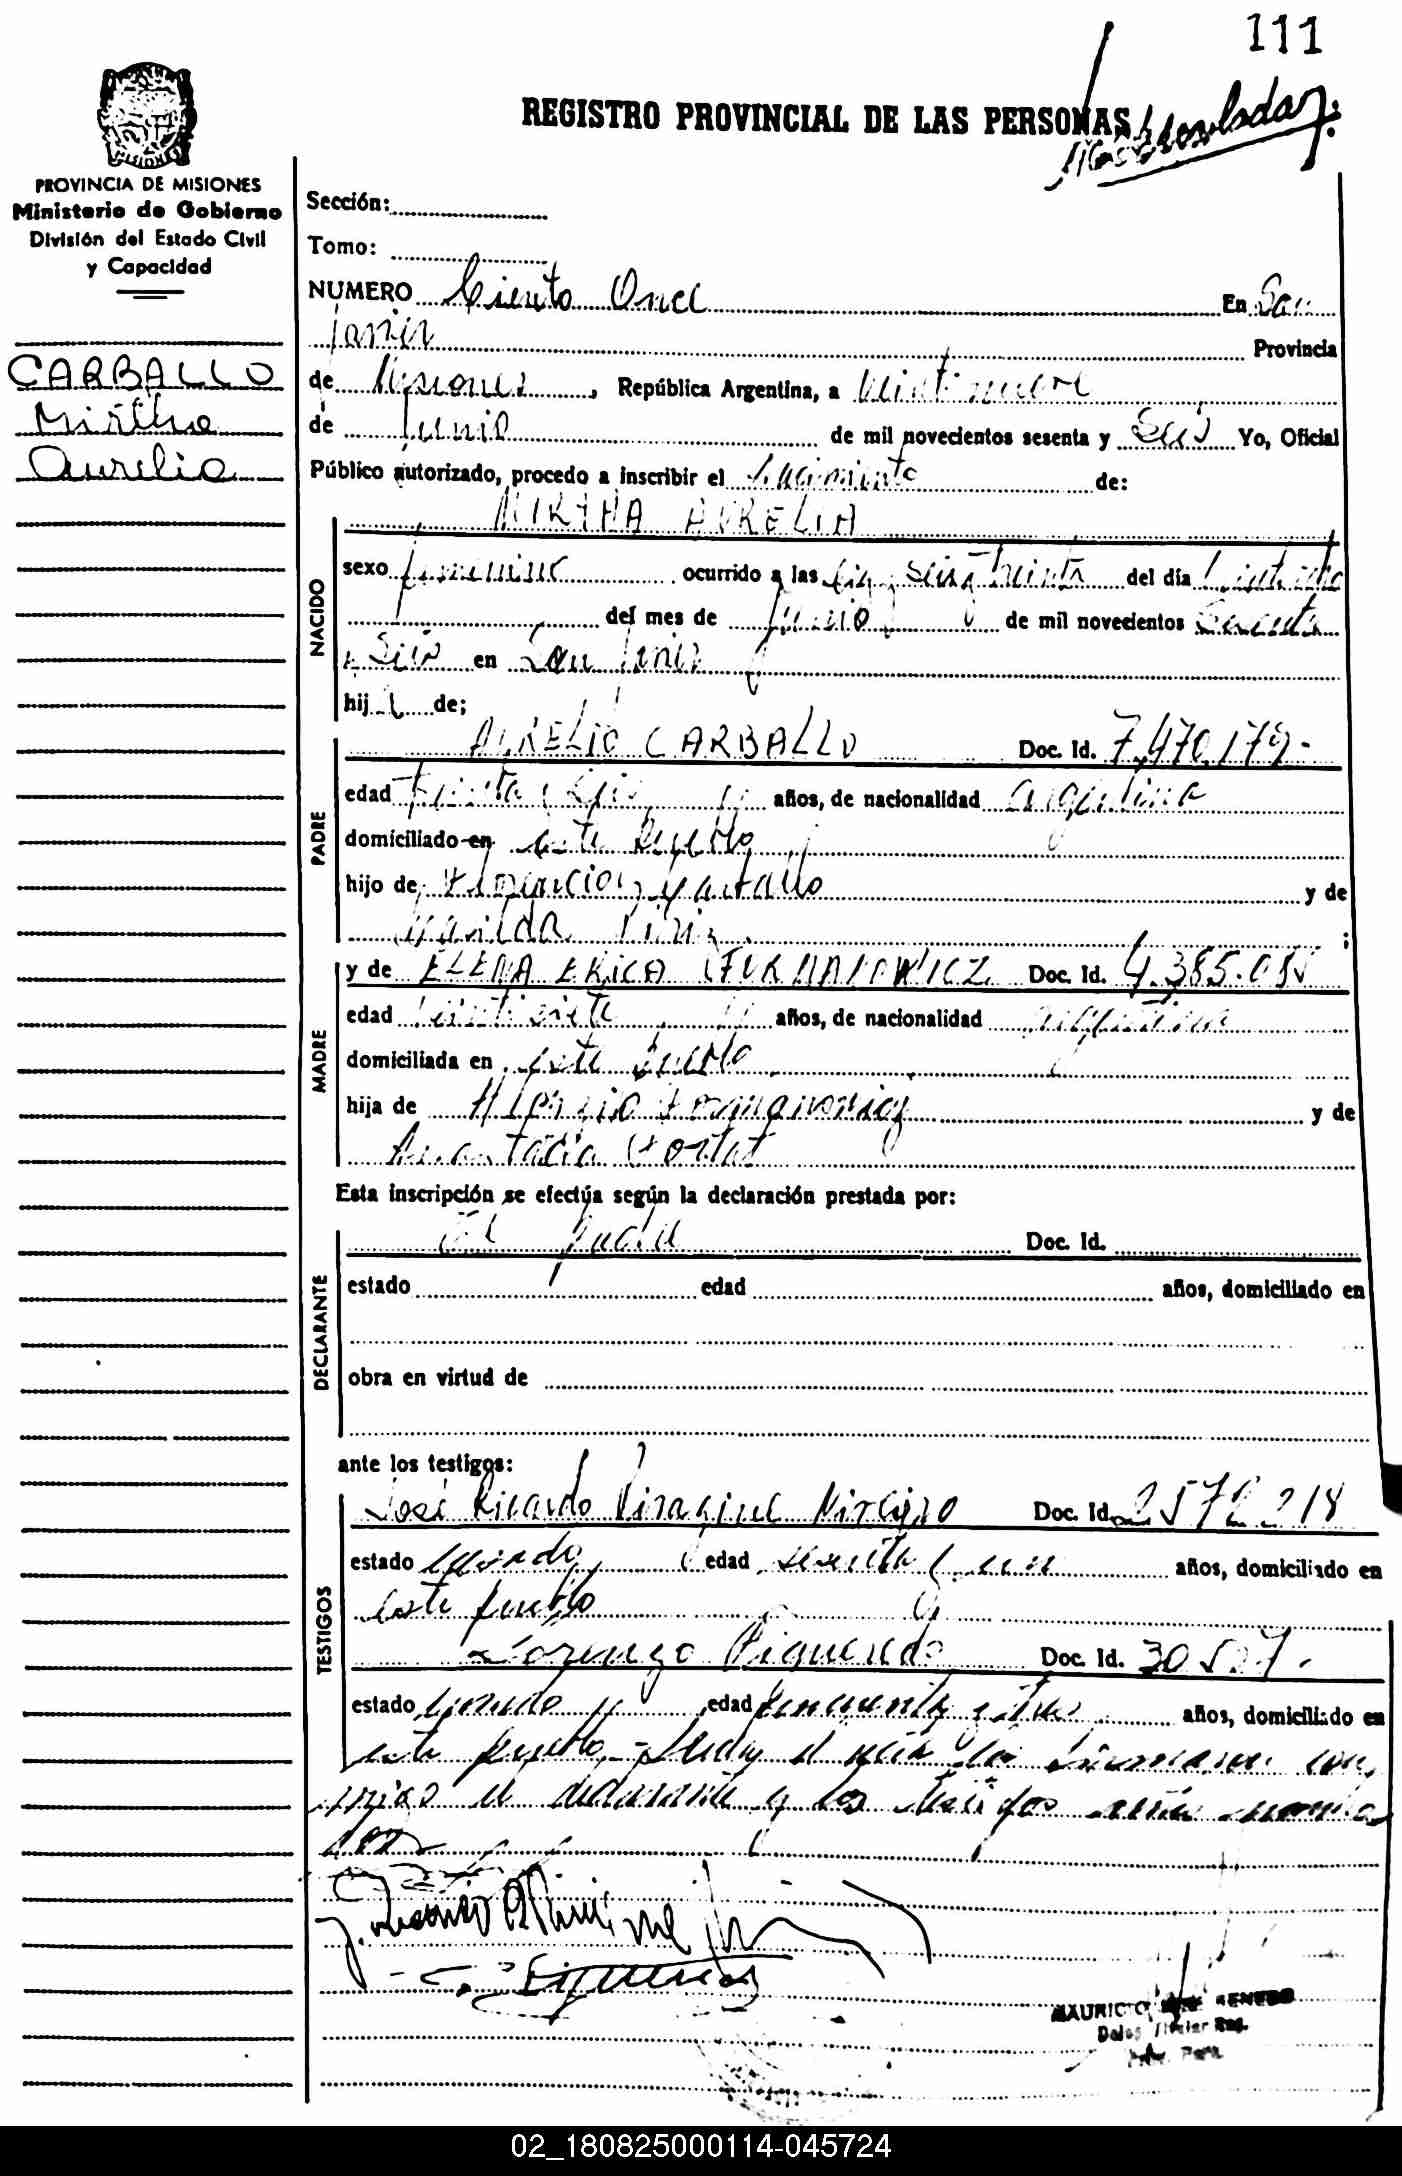 111
REGISTRO PROVINCIAL DE LAS PERSONAS
PROVINCIA DE MISIONES
Ministerio de Gobierno
División del Estado Civil
y Capacidad
CARBALLO
Mirtha
Aurelia
Sección:
Tomo:
NUMERO Ciento Once En San
Javier Provincia
de Misiones, República Argentina, a Veintinueve
de Junio de mil novecientos sesenta y Seis Yo, Oficial
Público autorizado, procedo a inscribir el Nacimiento de:
NACIDO
MIRTHA AURELIA
sexo femenino ocurrido a las diez seis y treinta del día Veintiocho
del mes de Junio de mil novecientos Sesenta
y Seis en San Javier
hija de;
PADRE
AURELIO CARBALLO Doc. Id. 7,470,179.-
edad Treinta y Seis años, de nacionalidad argentina
domiciliado en este pueblo
hijo de Carballo y de
;
MADRE
y de ELENA ERICA Doc. Id. 4.385.
edad Veintisiete años, de nacionalidad argentina
domiciliada en este pueblo
hija de y de
Esta inscripción se efectúa según la declaración prestada por:
DECLARANTE
El padre Doc. Id.
estado edad años, domiciliado en
obra en virtud de
ante los testigos:
TESTIGOS
José Ricardo Doc. Id. 2572218
estado casado edad sesenta y un años, domiciliado en
este pueblo
Lorenzo Figueredo Doc. Id. 30527.
estado casado edad cincuenta y tres años, domiciliado en
este pueblo - Leída el acta la firmaron con
migo el declarante y los testigos arriba nombra
dos
MAURICIO
02_180825000114-045724